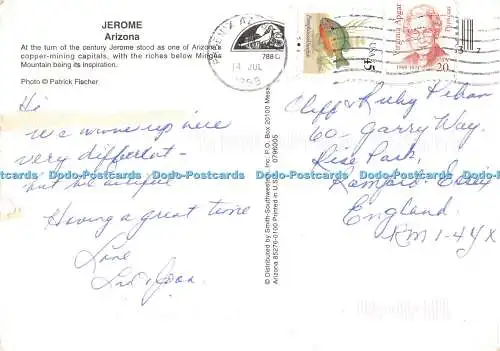 JEROME
Arizona
At the turn of the century Jerome stood as one of Arizona's
copper-mining capitals, with the riches below Mingus
Mountain being its inspiration.
Photo © Patrick Fischer
Hi
we up here
very different -
but beautiful
Having a great time
Love
Joan
© Distributed by Smith-Southwestern, Inc. P.O. Box 20100 Mesa,
Arizona 85276-0100 Printed in U.S.A.
14 JUL
USA 45
Virginia Apgar
Physician
20
Cliff & Ruby
60 - Garry Way.
Rise Park,
Romford - Essex
England.
RM1-4YX
Dodo-Postcards Dodo-Postcards Dodo-Postcards Dodo-Postcards